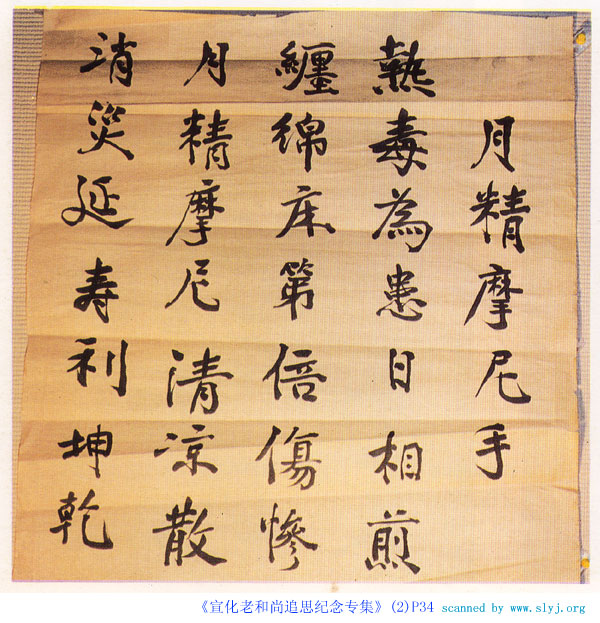 月精摩尼手
熱毒為患日相煎
纏綿床第倍傷慘
月精摩尼清凉散
消災延寿利坤乾
《宣化老和尚追思纪念专集》(2)P34 scanned by www.slyj.org